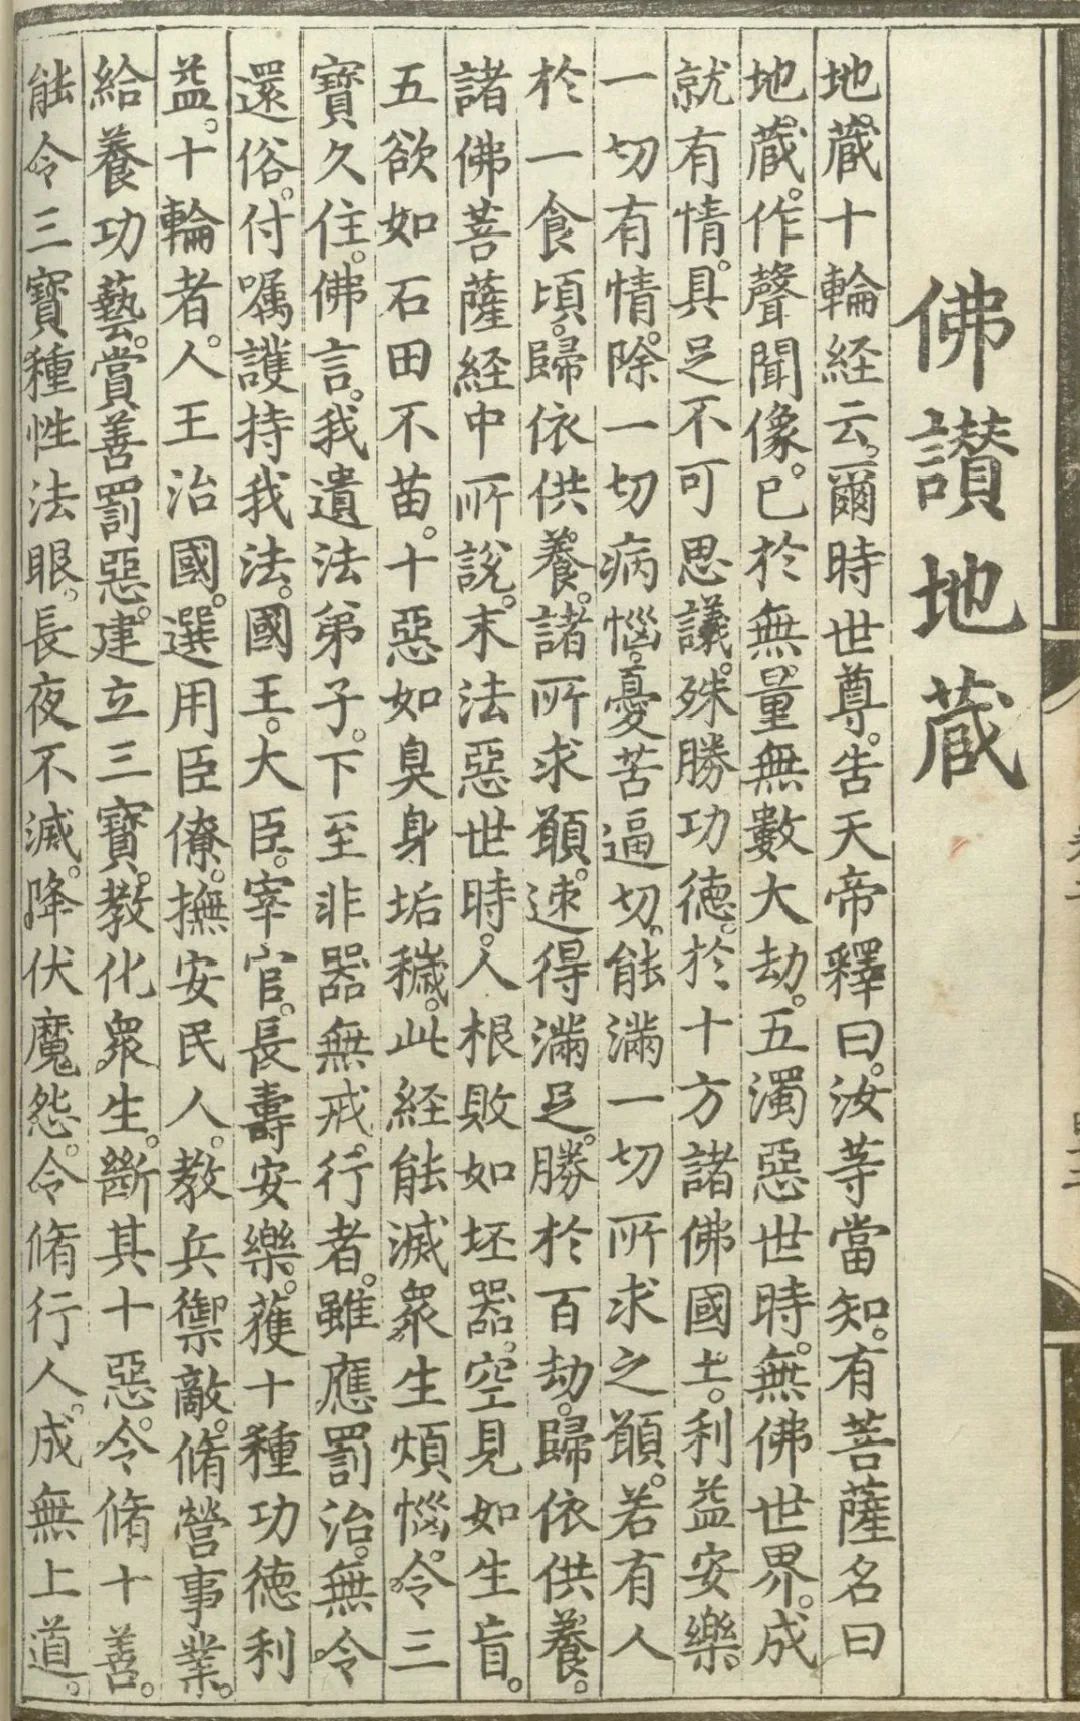 佛讃地蔵
地蔵十輪経云。爾時世尊。告天帝釋曰。汝等當知。有菩薩名曰
地蔵。作聲聞像。已於無量無數大劫。五濁惡世時。無佛世界。成
就有情。具足不可思議。殊勝功徳。於十方諸佛國土。利益安樂。
一切有情。除一切病惱。憂苦逼切。能滿一切所求之願。若有人
於一食頃。歸依供養。諸所求願。速得滿足。勝於百劫。歸依供養。
諸佛菩薩経中所說。末法惡世時。人根敗如坯器。空見如生盲。
五欲如石田不苗。十惡如臭身垢穢。此経能滅衆生煩惱。令三
寶久住。佛言。我遺法弟子。下至非器無戒。行者。雖應罰治。無令
還俗。付嘱護持我法。國王。大臣。宰官。長壽安樂。獲十種功徳利
益。十輪者。人王治國。選用臣僚。撫安民人。教兵禦敵。脩營事業。
給養功藝。賞善罰惡。建立三寶。教化衆生。斷其十惡。令脩十善。
能令三寶種性法眼。長夜不滅。降伏魔怨。令脩行人。成無上道。